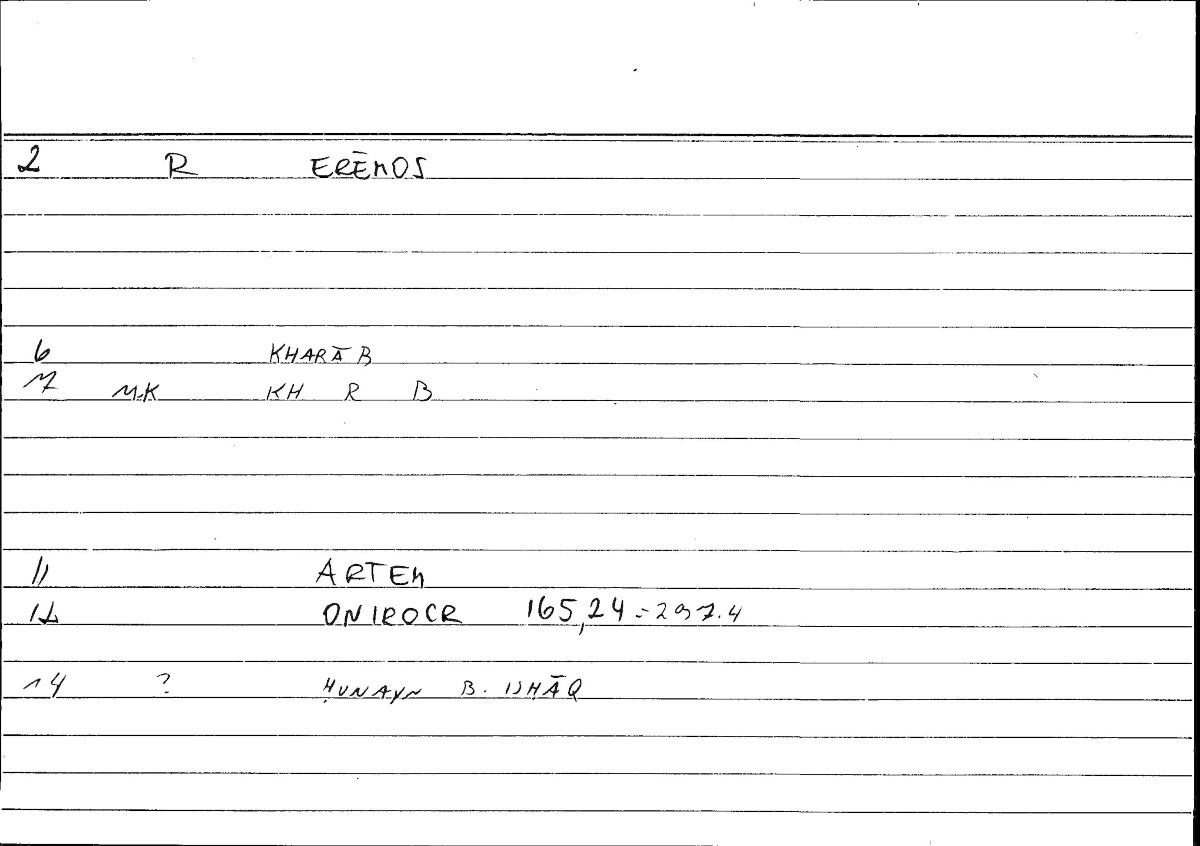 2 R ERĒMOS
6 KHARĀB
7 MK KH R B
11 ARTEM
12 ONIROCR 165,24 = 297.4
14 ? ḤUNAYN B. ISḤĀQ